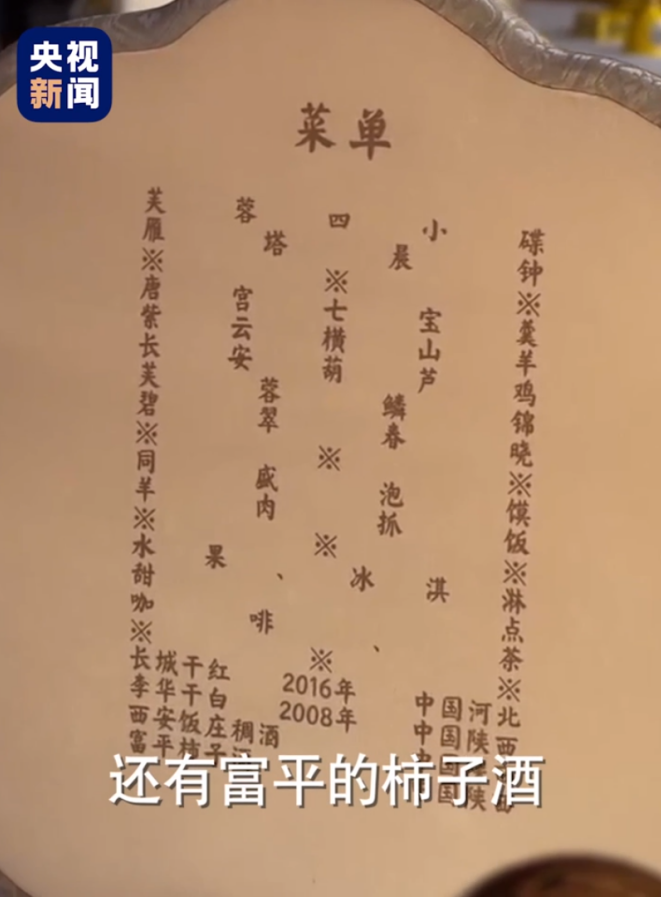 央视
新闻
菜单
芙蓉四小碟
雁塔晨钟
※※※
唐宫七宝羹
紫云横山羊
长安葫芦鸡
芙蓉鳞锦
碧翠春晓
※※※
同盛泡馍
羊肉抓饭
※※※
水果、冰淇淋
甜点
咖啡、茶
※※※
长城干红 2016年 中国河北
李华干白 2008年 中国陕西
西安饭庄稠酒 中国
富平柿子 中国陕
还有富平的柿子酒